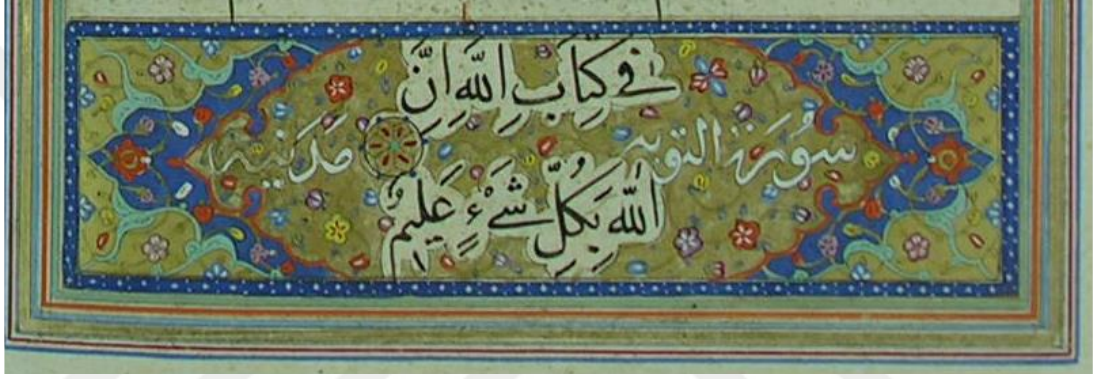 فِي كِتَابِ اللَّهِ إِنَّ
سورة التوبه مدنية
اللَّهَ بِكُلِّ شَيْءٍ عَلِيمٌ